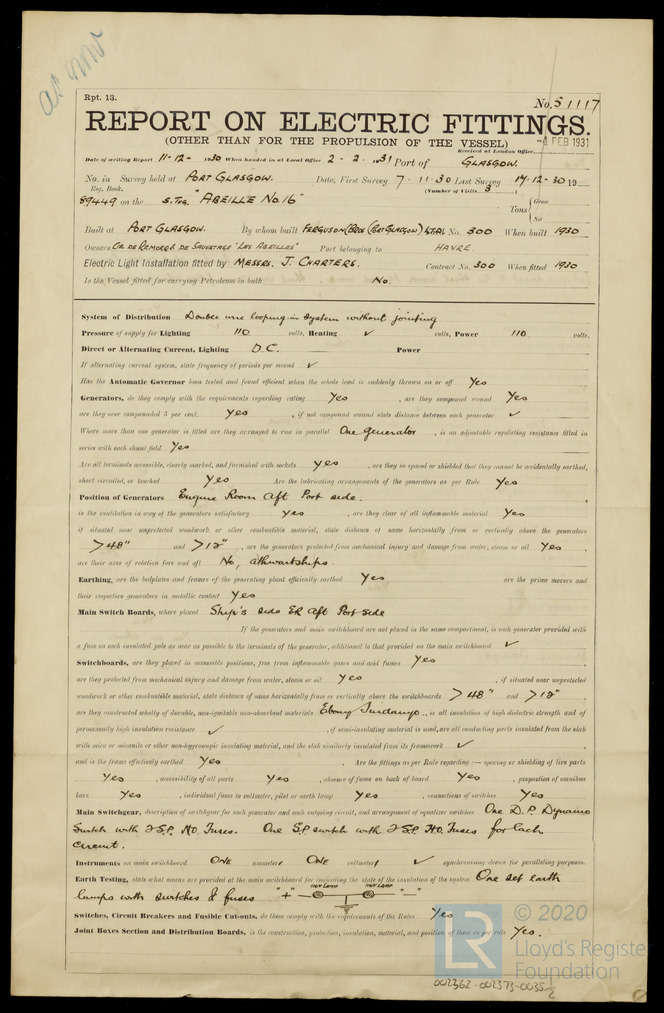 Rpt. 13.
No. 51117
REPORT ON ELECTRIC FITTINGS.
(OTHER THAN FOR THE PROPULSION OF THE VESSEL)
4 FEB 1931
Received at London Office
Date of writing Report 11-12-1930 When handed in at Local Office 2-2-1931 Port of GLASGOW.
No. in Survey held at PORT GLASGOW. Date, First Survey 7.11.30 Last Survey 17.12.30 19
Reg. Book. (Number of Visits 3)
89449 on the S. Tug. "ABEILLE No. 16" Tons { Gross
Net
Built at PORT GLASGOW. By whom built FERGUSON BROS (PORT GLASGOW) LTD. Yard No. 300 When built 1930
Owners CIE DE REMORG. DE SAUVETAGE "LES ABEILLES" Port belonging to HAVRE.
Electric Light Installation fitted by MESSRS. J. CHARTERS. Contract No. 300 When fitted 1930
Is the Vessel fitted for carrying Petroleum in bulk No.
System of Distribution Double wire looping-in system without jointing
Pressure of supply for Lighting 110 volts, Heating ✓ volts, Power 110 volts.
Direct or Alternating Current, Lighting D.C. Power
If alternating current system, state frequency of periods per second ✓
Has the Automatic Governor been tested and found efficient when the whole load is suddenly thrown on or off Yes
Generators, do they comply with the requirements regarding rating Yes , are they compound wound Yes
are they over compounded 5 per cent. Yes , if not compound wound state distance between each generator ✓
Where more than one generator is fitted are they arranged to run in parallel One generator , is an adjustable regulating resistance fitted in
series with each shunt field Yes
Are all terminals accessible, clearly marked, and furnished with sockets Yes , are they so spaced or shielded that they cannot be accidentally earthed,
short circuited, or touched Yes Are the lubricating arrangements of the generators as per Rule Yes
Position of Generators Engine Room Aft Port side.
is the ventilation in way of the generators satisfactory Yes , are they clear of all inflammable material Yes
if situated near unprotected woodwork or other combustible material, state distance of same horizontally from or vertically above the generators
>48" and >12" , are the generators protected from mechanical injury and damage from water, steam or oil Yes
are their axes of rotation fore and aft No, athwartships.
Earthing, are the bedplates and frames of the generating plant efficiently earthed Yes are the prime movers and
their respective generators in metallic contact Yes
Main Switch Boards, where placed Ship's side ER Aft Port side
If the generators and main switchboard are not placed in the same compartment, is each generator provided with
a fuse on each insulated pole as near as possible to the terminals of the generator, additional to that provided on the main switchboard ✓
Switchboards, are they placed in accessible positions, free from inflammable gases and acid fumes Yes
are they protected from mechanical injury and damage from water, steam or oil Yes , if situated near unprotected
woodwork or other combustible material, state distance of same horizontally from or vertically above the switchboards >48" and >12"
are they constructed wholly of durable, non-ignitable non-absorbent materials Ebony Sindanyo , is all insulation of high dielectric strength and of
permanently high insulation resistance ✓ , if semi-insulating material is used, are all conducting parts insulated from the slab
with mica or micanite or other non-hygroscopic insulating material, and the slab similarly insulated from its framework ✓
and is the frame effectively earthed Yes Are the fittings as per Rule regarding :— spacing or shielding of live parts
Yes , accessibility of all parts Yes , absence of fuses on back of board Yes , proportion of omnibus
bars Yes , individual fuses to voltmeter, pilot or earth lamp Yes , connections of switches Yes
Main Switchgear, description of switchgear for each generator and each outgoing circuit, and arrangement of equalizer switches One D.P. Dynamo
Switch with 2 S.P. H.O. Fuses. One S.P. switch with 2 S.P. H.O. Fuses for each
circuit.
Instruments on main switchboard ONE ammeter ONE voltmeter ✓ synchronising device for paralleling purposes.
Earth Testing, state what means are provided at the main switchboard for indicating the state of the insulation of the system One set earth
lamps with switches & fuses "+" 110V LAMP 110V LAMP "-"
Switches, Circuit Breakers and Fusible Cutouts, do these comply with the requirements of the Rules Yes
Joint Boxes Section and Distribution Boards, is the construction, protection, insulation, material, and position of these as per rule Yes.
LR
© 2020
Lloyd's Register
Foundation
002362-002373-0035-2